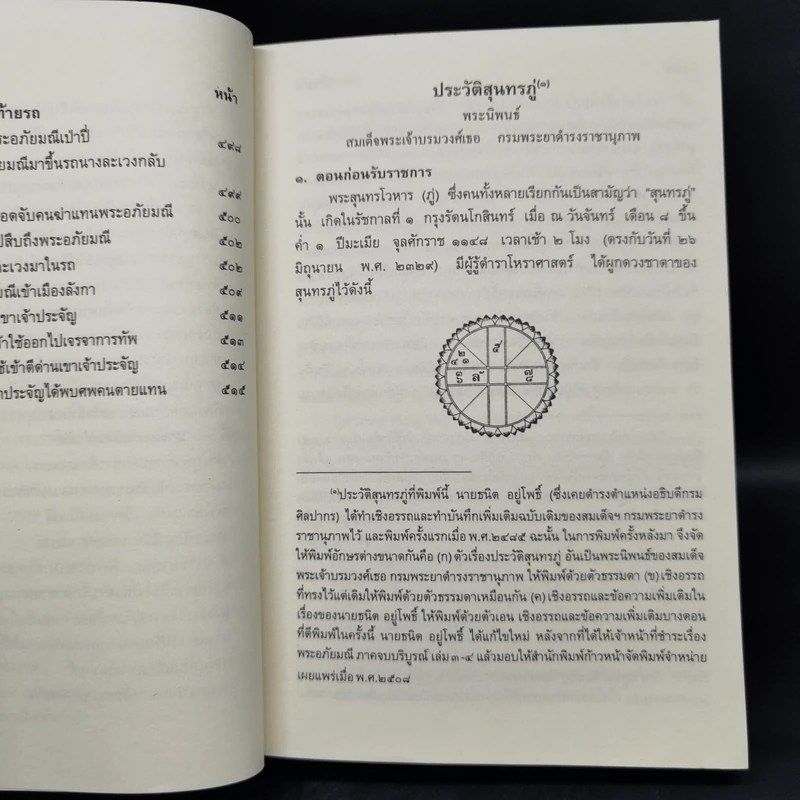 หน้า
ท้ายรถ
ระอภัยมณีเป่าปี่ ๔๙๘
ยมณีมาขึ้นรถนางละเวงกลับ
๔๙๙
อดจับคนฆ่าแทนพระอภัยมณี ๕๐๐
ปสืบถึงพระอภัยมณี ๕๐๒
ละเวงมาในรถ ๕๐๒
ยณีเข้าเมืองลังกา ๕๐๙
เขาเจ้าประจัญ ๕๑๑
ข้าใช้ออกไปเจรจาการทัพ ๕๑๓
ช้เข้าตีด่านเขาเจ้าประจัญ ๕๑๔
าประจัญได้พบศพคนตายแทน ๕๑๕
ประวัติสุนทรภู่(๑)
พระนิพนธ์
สมเด็จพระเจ้าบรมวงศ์เธอ กรมพระยาดำรงราชานุภาพ
๑. ตอนก่อนรับราชการ
พระสุนทรโวหาร (ภู่) ซึ่งคนทั้งหลายเรียกกันเป็นสามัญว่า "สุนทรภู่"
นั้น เกิดในรัชกาลที่ ๑ กรุงรัตนโกสินทร์ เมื่อ ณ วันจันทร์ เดือน ๘ ขึ้น
ค่ำ ๑ ปีมะเมีย จุลศักราช ๑๑๔๘ เวลาเช้า ๒ โมง (ตรงกับวันที่ ๒๖
มิถุนายน พ.ศ. ๒๓๒๙) มีผู้รู้ตำราโหราศาสตร์ ได้ผูกดวงชาตาของ
สุนทรภู่ไว้ดังนี้
(๑)ประวัติสุนทรภู่ที่พิมพ์นี้ นายธนิต อยู่โพธิ์ (ซึ่งเคยดำรงตำแหน่งอธิบดีกรม
ศิลปากร) ได้ทำเชิงอรรถและทำบันทึกเพิ่มเติมฉบับเดิมของสมเด็จฯ กรมพระยาดำรง
ราชานุภาพไว้ และพิมพ์ครั้งแรกเมื่อ พ.ศ.๒๔๘๕ ฉะนั้น ในการพิมพ์ครั้งหลังมา จึงจัด
ให้พิมพ์อักษรต่างขนาดกันคือ (ก) ตัวเรื่องประวัติสุนทรภู่ อันเป็นพระนิพนธ์ของสมเด็จ
พระเจ้าบรมวงศ์เธอ กรมพระยาดำรงราชานุภาพ ให้พิมพ์ด้วยตัวธรรมดา (ข) เชิงอรรถ
ที่ทรงไว้แต่เดิมให้พิมพ์ด้วยตัวธรรมดาเหมือนกัน (ค) เชิงอรรถและข้อความเพิ่มเติมใน
เรื่องของนายธนิต อยู่โพธิ์ ให้พิมพ์ด้วยตัวเอน เชิงอรรถและข้อความเพิ่มเติมบางตอน
ที่ตีพิมพ์ในครั้งนี้ นายธนิต อยู่โพธิ์ ได้แก้ไขใหม่ หลังจากที่ได้ให้เจ้าหน้าที่ชำระเรื่อง
พระอภัยมณี ภาคจบบริบูรณ์ เล่ม ๓-๔ แล้วมอบให้สำนักพิมพ์ก้าวหน้าจัดพิมพ์จำหน่าย
เผยแพร่เมื่อ พ.ศ.๒๕๐๘